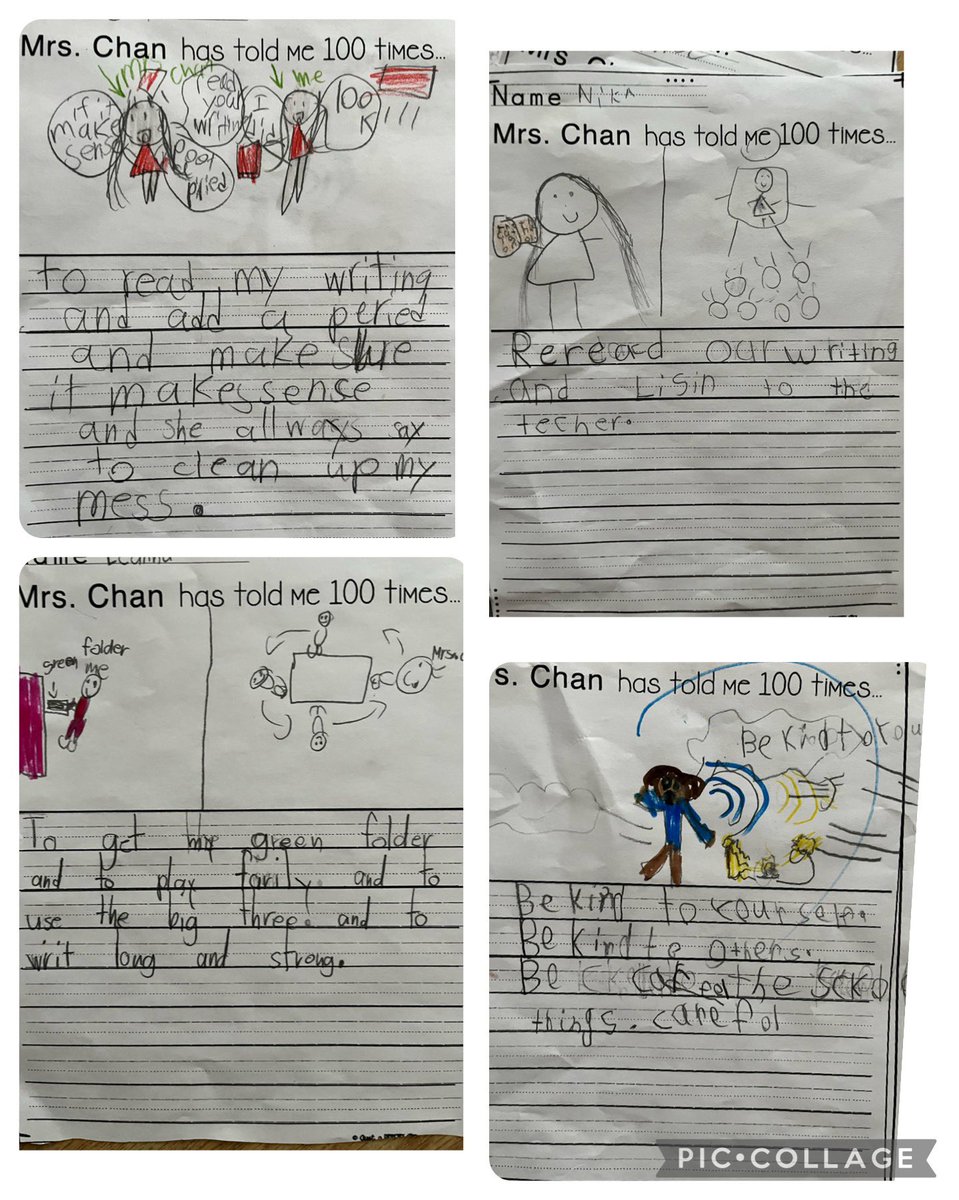 Mrs. Chan has told me 100 times...
Mrs chan
me
if it
make
sense
read
your
writing
I
did
100
K
peried
to read my writing
and add a peried
and make shue
it makes sense
and she allways sax
to clean up my
mess.
Name Nika
Mrs. Chan has told me 100 times...
Reread our writing
and Lisin to the
techer.
Mrs. Chan has told me 100 times...
folder
green me
Mrs.
To get my green folder
and to play farily. and to
use the big three. and to
writ long and strong.
s. Chan has told me 100 times...
Be Kind to
Be Kind to
Be Kind to others.
Be the
things. careful
PIC•COLLAGE